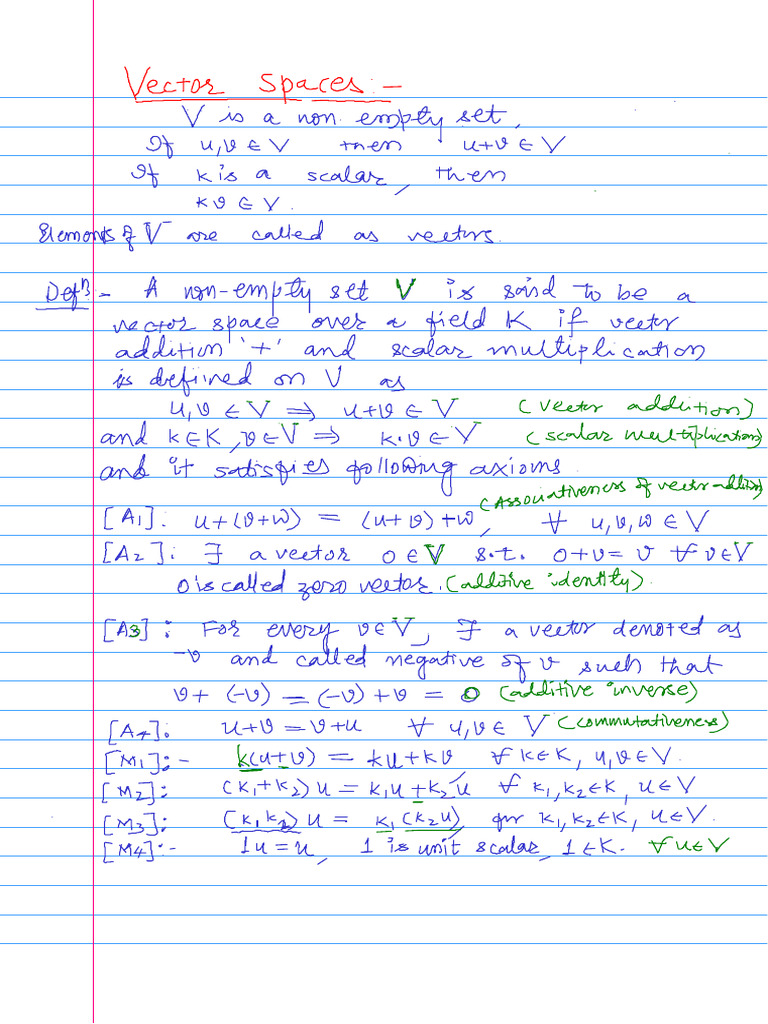 Vector Spaces:-
V is a non empty set,
If u,v ∈ V then u+v ∈ V
If k is a scalar, then
kv ∈ V.
Elements of V are called as vectors.
Defⁿ:- A non-empty set V is said to be a
vector space over a field K if vector
addition '+' and scalar multiplication
is defined on V as
u,v ∈ V ⇒ u+v ∈ V (vector addition)
and k∈K, v∈V ⇒ k.v ∈ V (scalar multiplication)
and it satisfies following axioms.
(Associativeness of vector addition)
[A1]: u+(v+w) = (u+v)+w, ∀ u,v,w ∈ V
[A2]: ∃ a vector 0 ∈ V s.t. 0+v = v ∀ v∈V
0 is called zero vector. (additive identity).
[A3]: For every v∈V, ∃ a vector denoted as
-v and called negative of v such that
v+(-v) = (-v)+v = 0 (additive inverse)
[A4]: u+v = v+u ∀ u,v ∈ V (commutativeness)
[M1]:- k(u+v) = ku+kv ∀ k∈K, u,v∈V.
[M2]: (k₁+k₂)u = k₁u+k₂u ∀ k₁,k₂∈K, u∈V
[M3]: (k₁k₂)u = k₁(k₂u), for k₁,k₂∈K, u∈V.
[M4]:- 1u = u, 1 is unit scalar, 1∈K. ∀u∈V